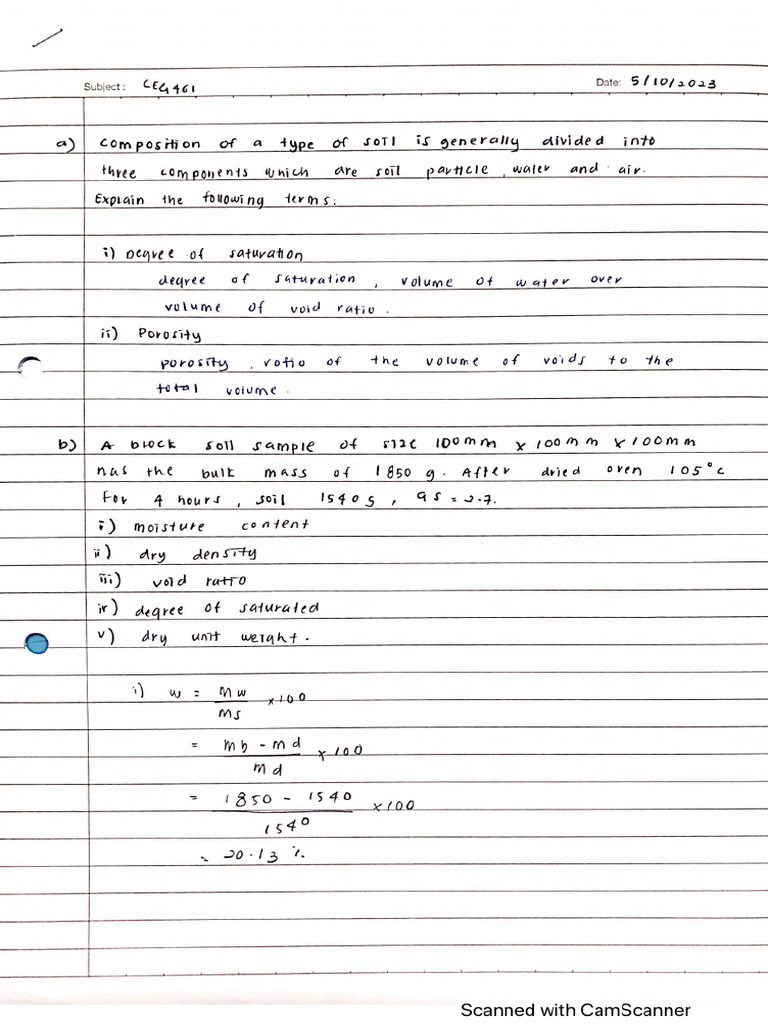 Subject: CEG461 Date: 5/10/2023
a) composition of a type of soil is generally divided into
three components which are soil particle, water and air.
Explain the following terms:
i) Degree of saturation
degree of saturation, volume of water over
volume of void ratio.
ii) Porosity
porosity, ratio of the volume of voids to the
total volume.
b) A block soil sample of size 100mm x 100mm x 100mm
has the bulk mass of 1850 g. After dried oven 105°c
for 4 hours, soil 1540g, Gs = 2.7.
i) moisture content
ii) dry density
iii) void ratio
iv) degree of saturated
v) dry unit weight.
i) w = Mw/Ms x100
= mb - md/md x 100
= 1850 - 1540/1540 x100
= 20.13 %
Scanned with CamScanner